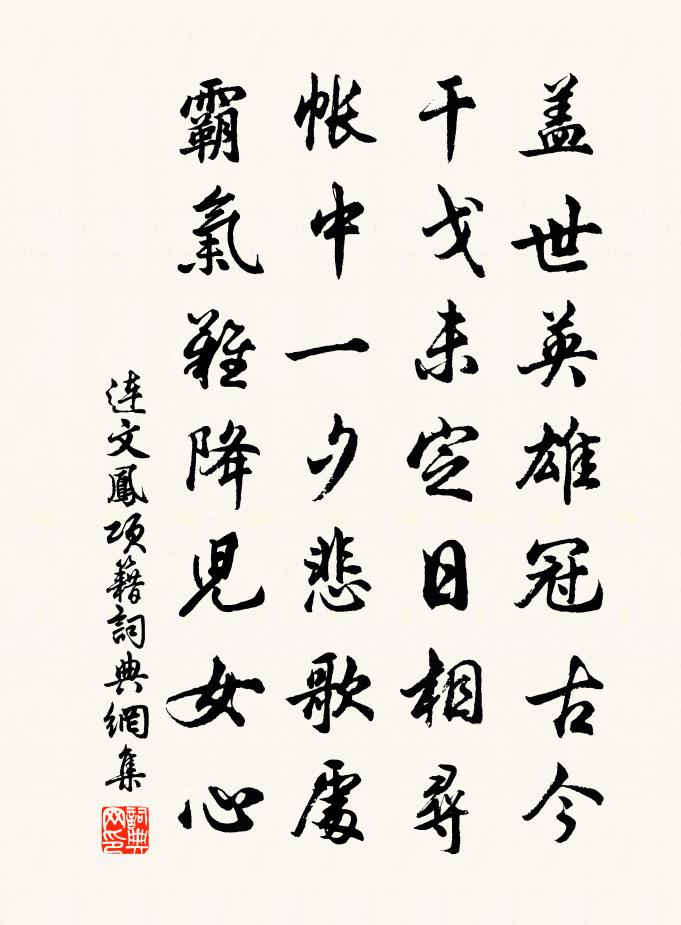 盖世英雄冠古今
干戈未定日相尋
帳中一夕悲歌處
霸氣難降児女心
連文鳳項籍詞典網集
詞典网印